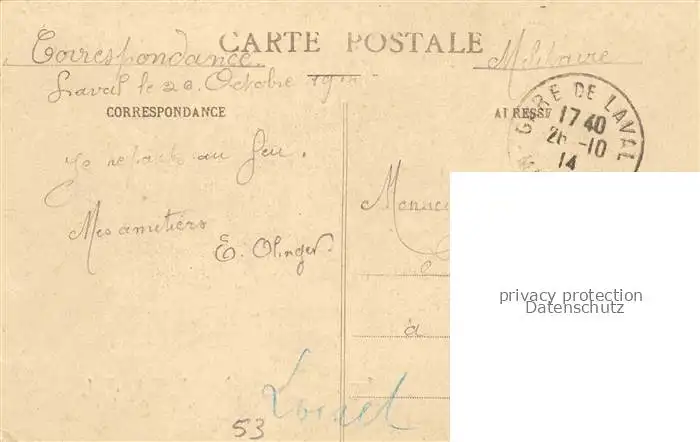 CARTE POSTALE
Correspondance Militaire
Laval le 26 Octobre 1914
CORRESPONDANCE
ADRESSE
GARE DE LAVAL
17 40
26 -10
14
Je repars au feu.
Mes amitiers
E. Olinger.
à
privacy protection
Datenschutz
Loiret
53